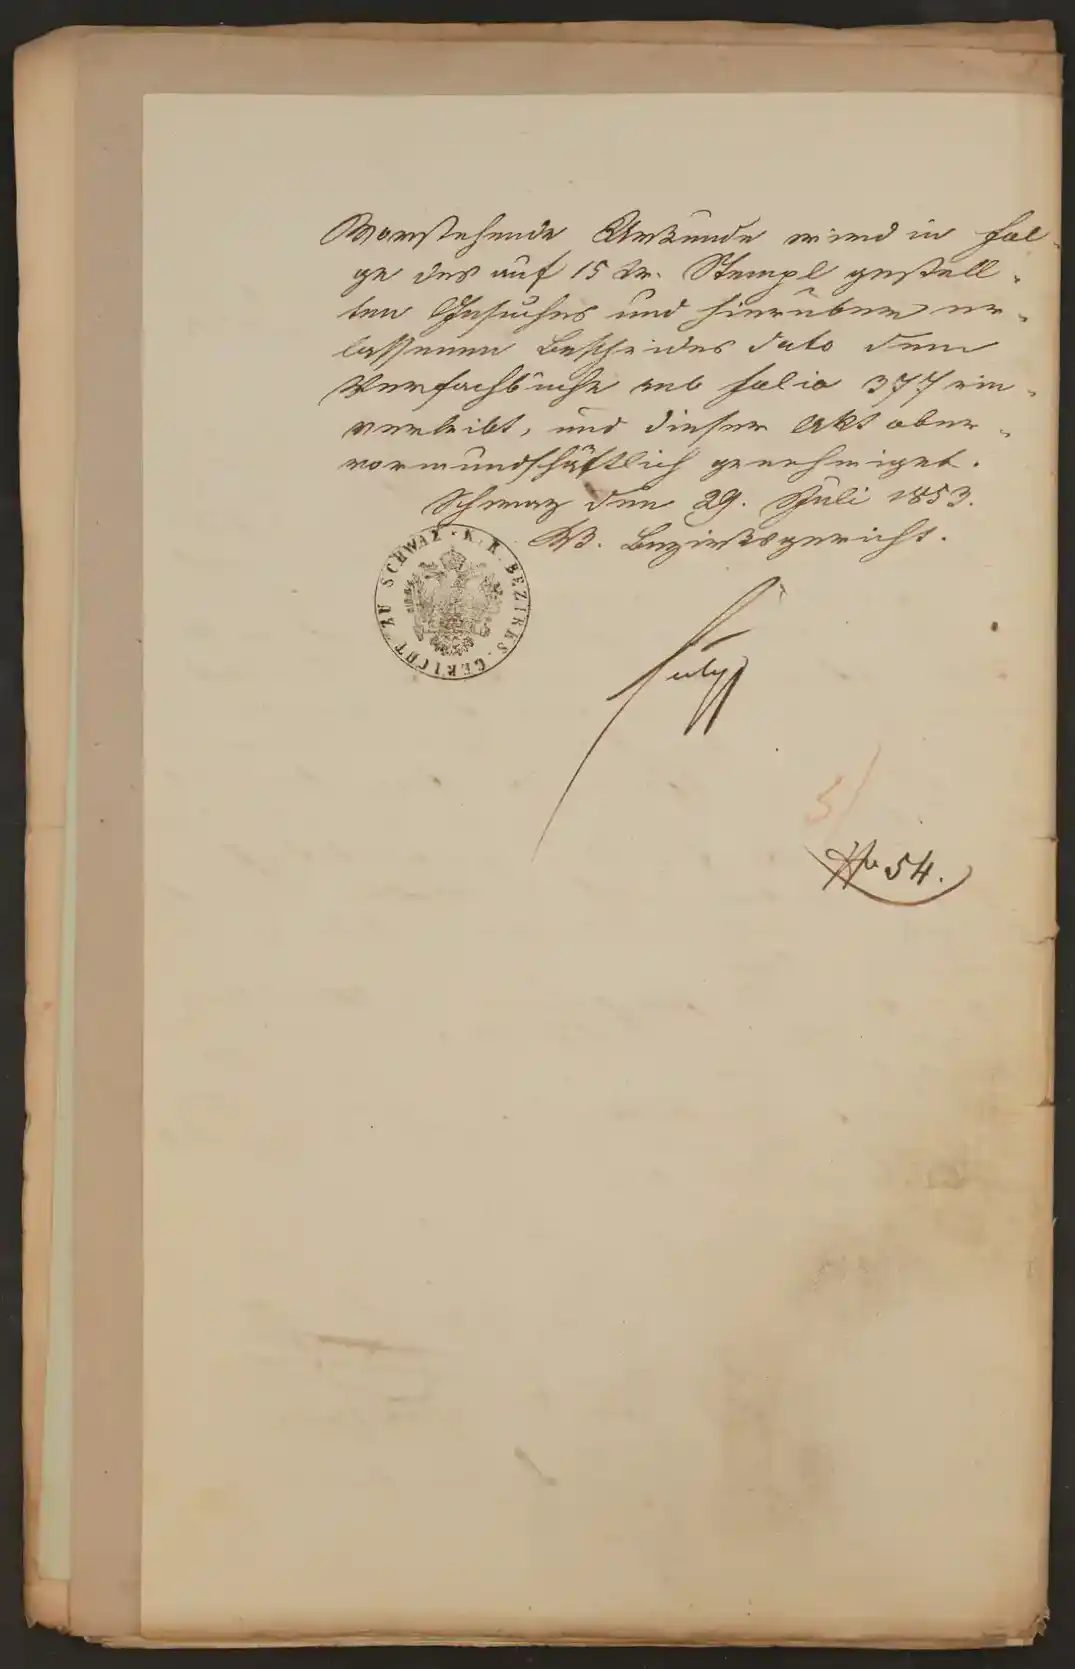 Vorstehende Urkunde wird in Fol-
ge des auf 15 kr. Stempl gestell-
ten Gesuches und hierüber er-
lassenen Bescheides dato dem
Verfachbuche sub folio 377 ein-
verleibt, und dieser Akt ober-
vormundschäftlich genehmiget.
Schwaz den 29. Juli 1853.
K. Bezirksgericht.
K. K. BEZIRKS-GERICHT ZU SCHWAZ
5/
No 54.